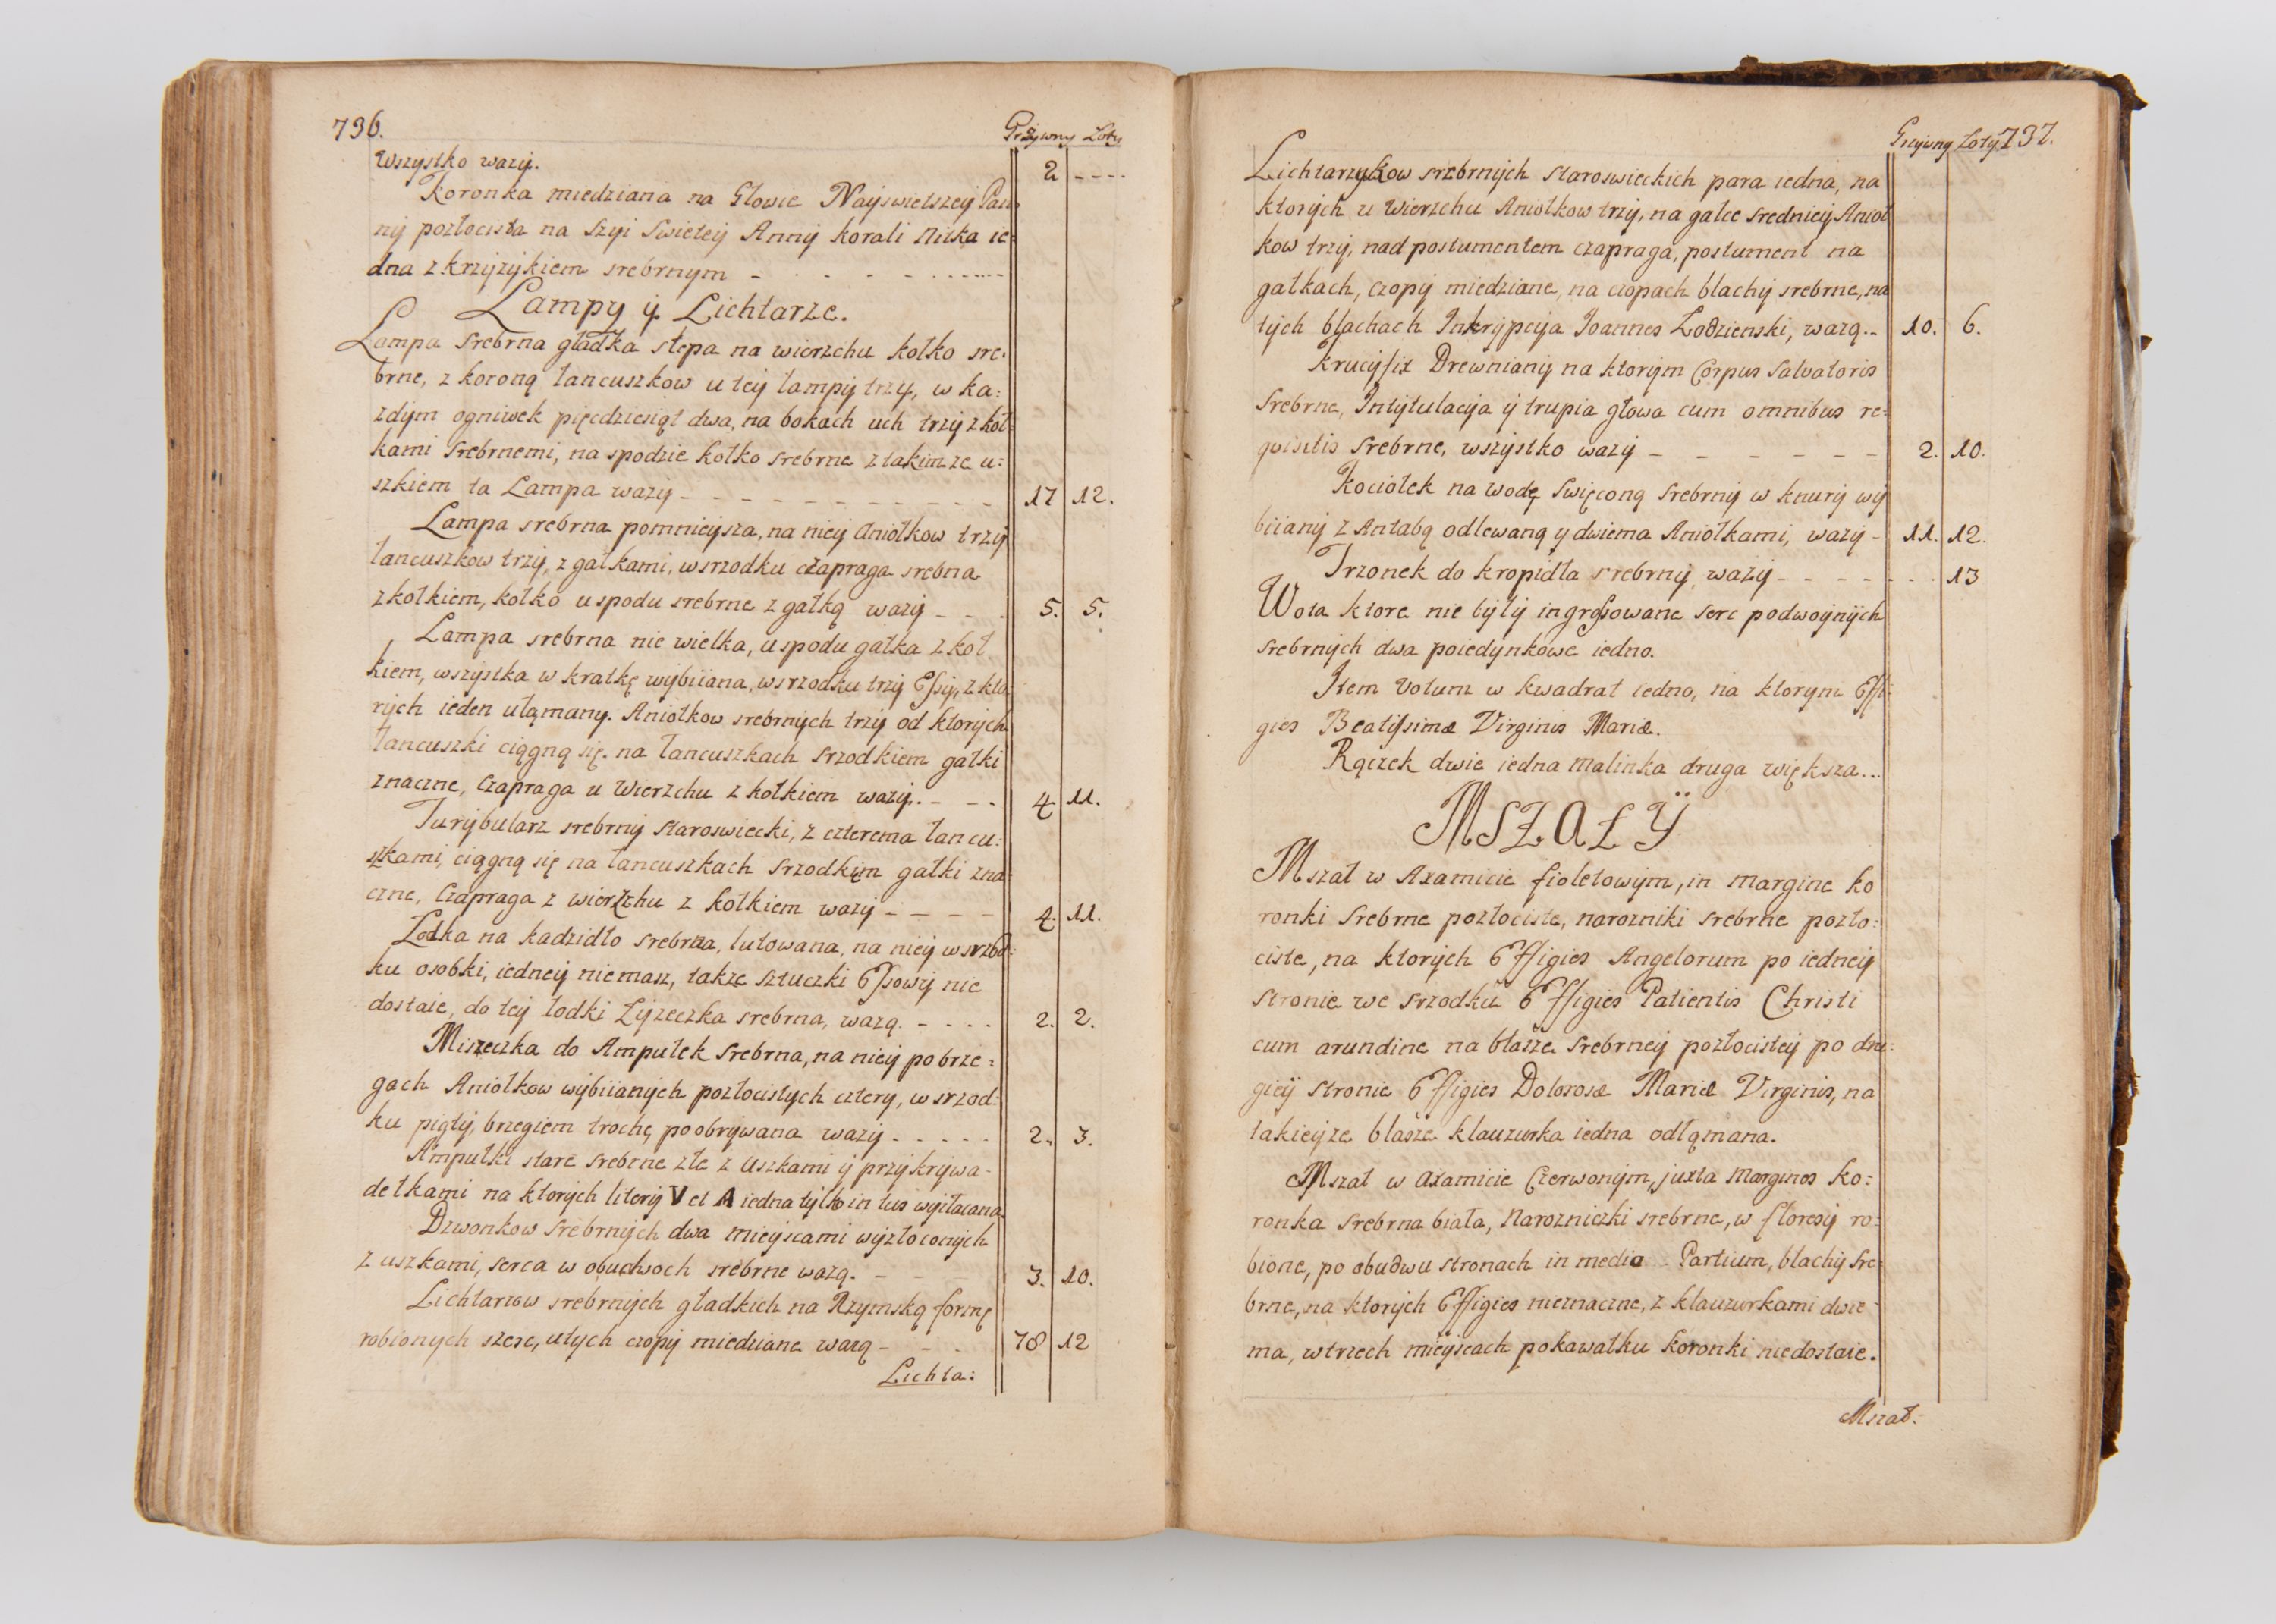 736.
Grzywny Loty
Wszystko wazÿ. 2 ----
Koronka miedziana na Głowie Nayswietszeÿ Pan=
nÿ pozłocista na Szyi Swieteÿ Annÿ korali nitka ie=
dna z krzÿzÿkiem srebrnym - - - - - - -
Lampy ÿ Lichtarze.
Lampa Srebrna gładka slepa na wierzchu kołko sre=
brne, z koroną łancuszkow u teÿ lampÿ trzy, w ka=
zdÿm ogniwek pięcdziesiąt dwa, na bokach uch trzÿ z koł=
kami Srebrnemi, na spodzie kołko srebrne z takimze u=
szkiem ta Lampa wazÿ - - - - - - - - - 17 12.
Lampa srebrna pomnieÿsza, na nieÿ Aniołkow trzÿ
łancuszkow trzÿ, z gałkami, wsrzodku czapraga srebna
z kołkiem, kołko u spodu srebrne z gałką wazÿ - - - 5. 5.
Lampa srebrna nie wielka, u spodu gałka z koł
kiem, wszystka w kratkę wÿbiiana, wsrzodku trzÿ Essÿ, z kto
rÿch ieden ułąmany. Aniołkow srebrnÿch trzÿ od ktorÿch
łancuszki ciągną się. na łancuszkach srzodkiem gałki
znaczne, Czapraga u Wierzchu z kołkiem wazÿ. - - - 4 11.
Turÿbularz srebrnÿ staroswiecki, z czterema łancu=
szkami, ciągną się na łancuszkach srzodkięm gałki zna
czne, Czapraga z wierzchu z kołkiem wazÿ - - - - 4. 11.
Łodka na kadzidło srebrna, lutowana, na nieÿ wsrzod=
ku osobki, iedneÿ niemasz, takze sztuczki Essowÿ nie
dostaie, do teÿ łodki Łÿzeczka srebrna, wazą. - - - - 2. 2.
Miseczka do Ampułek Srebrna, na nieÿ po brze=
gach Aniołkow wÿbiianÿch pozłocistych cztery, w srzod=
ku piątÿ, brzegiem trochę poobrÿwana wazÿ - - - - - 2. 3.
Ampułki stare srebrne złe z uszkami ÿ przÿkrÿwa-
dełkami na ktorÿch literÿ V et A iedna tÿlko intus wÿzłacana.
Dzwonkow srebrnÿch dwa mieÿscami wÿzłoconÿch
z uszkami, serca w obudwoch srebrne wazą. - - - 3. 10.
Lichtarzow srebrnÿch gładkich na Rzymską formę
robionych szesc, u tych czopÿ miedziane wazą - - - 78 12
Lichta:
Grzywny Loty 737.
Lichtarzykow srebrnÿch staroswieckich para iedna, na
ktorÿch u Wierzchu Aniołkow trzÿ, na gałce srednieÿ Anioł
kow trzÿ, nad postumentem czapraga, postument na
gałkach, czopÿ miedziane, na czopach blachÿ srebrne, na
tÿch blachach Inkrÿpcÿa Ioannes Łodzienski, wazą.- 10. 6.
Krucÿfix Drewnianÿ na ktorÿm Corpus Salvatoris
Srebrne, Intÿtulacÿa ÿ trupia głowa cum omnibus re=
qvisitis Srebrne, wszÿstko wazÿ - - - - - - 2. 10.
Kociołek na wodę swięconą srebrnÿ w knurÿ wÿ
biianÿ z Antabą odlewaną y dwiema Aniołkami, wazÿ - 11. 12.
Trzonek do kropidła srebrnÿ, wazÿ - - - - - - - 13
Wota ktore nie bÿłÿ ingrossowane serc podwoÿnÿch
srebrnÿch dwa poiedynkowe iedno.
Item Votum w kwadrat iedno, na ktorym Effi-
gies Beatissimæ Virginis Mariæ.
Rączek dwie iedna malinka druga większa...
MSZAŁŸ
Mszał w Axamicie fioletowÿm, in margine ko
ronki Srebrne pozłociste, narozniki srebrne pozło=
ciste, na ktorÿch Effigies Angelorum po iedneÿ
stronie we srzodku Effigies Patientis Christi
cum arundine na błasze Srebrneÿ pozłocisteÿ po dru=
gieÿ stronie Effigies Dolorosæ Mariæ Virginis, na
takieÿze blasze klauzurka iedna odłąmana.
Mszał w Axamicie Czerwonÿm, juxta margines ko=
ronka Srebrna biała, Narozniczki srebrne, w floresÿ ro=
bione, po obudwu stronach in medio Partium, blachÿ Sre=
brne, na ktorÿch Effigies nieznaczne, z klauzurkami dwie-
ma, w trzech mieÿscach po kawałku koronki niedostaie.
Mszał.